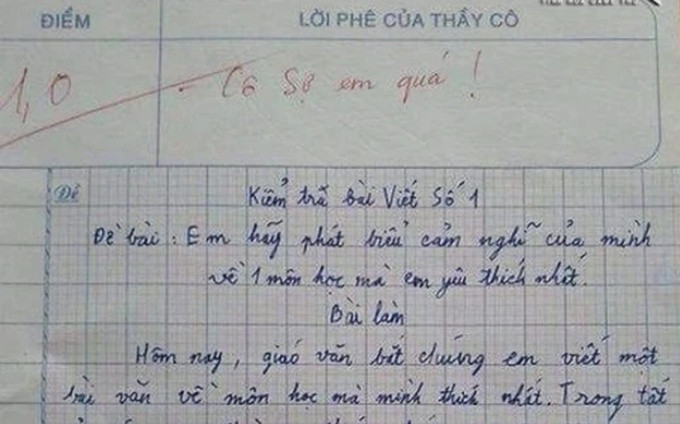 ĐIỂM
LỜI PHÊ CỦA THẦY CÔ
1,0
- Cô sợ em quá !
Đề
Kiểm trả bài Viết Số 1
Đề bài : Em hãy phát biểu cảm nghĩ của mình
về 1 môn học mà em yêu thích nhất.
Bài làm
Hôm nay, giáo văn bắt chúng em viết một
bài văn về môn học mà mình thích nhất. Trong tất